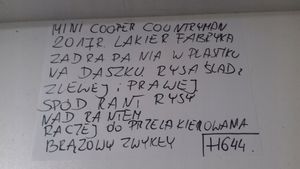 MINI COOPER COUNTRYMAN
2017R. LAKIER FABRYKA
ZADRAPANIA W PLASTKU
NA DASZKU RYSA ŚLAD.
Z LEWEJ i PRAWEJ
SPÓD RANT RYSY
NAD RANTEM
RACZEJ do PRZELAKIEROWANA
BRĄZOWY ZWYKŁY H644.